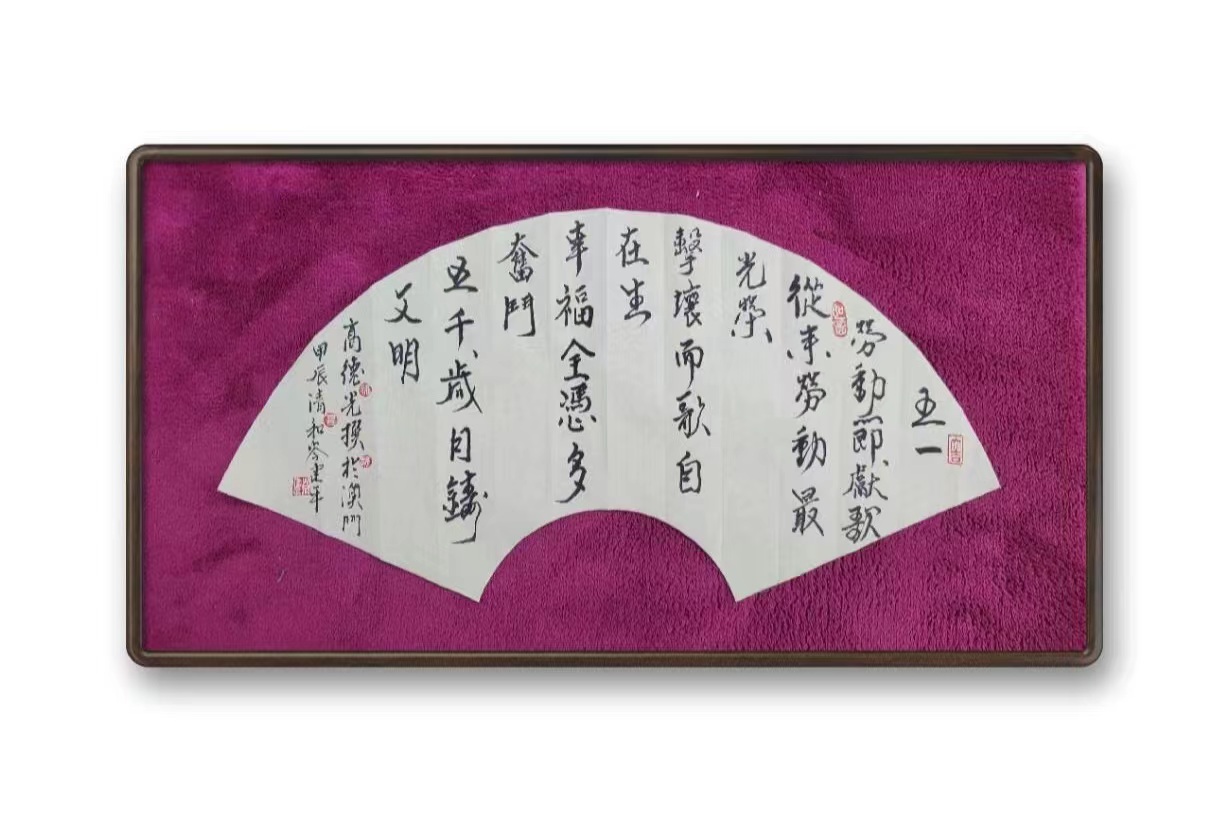 五一
勞動節獻歌
從來勞動最
光榮
擊壤而歌自
在生
幸福全憑多
奮鬥
五千歲月鑄
文明
高德光撰於澳門
甲辰清和岑建平